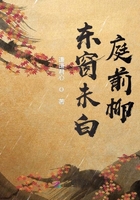 庭前柳
东窗未白
著